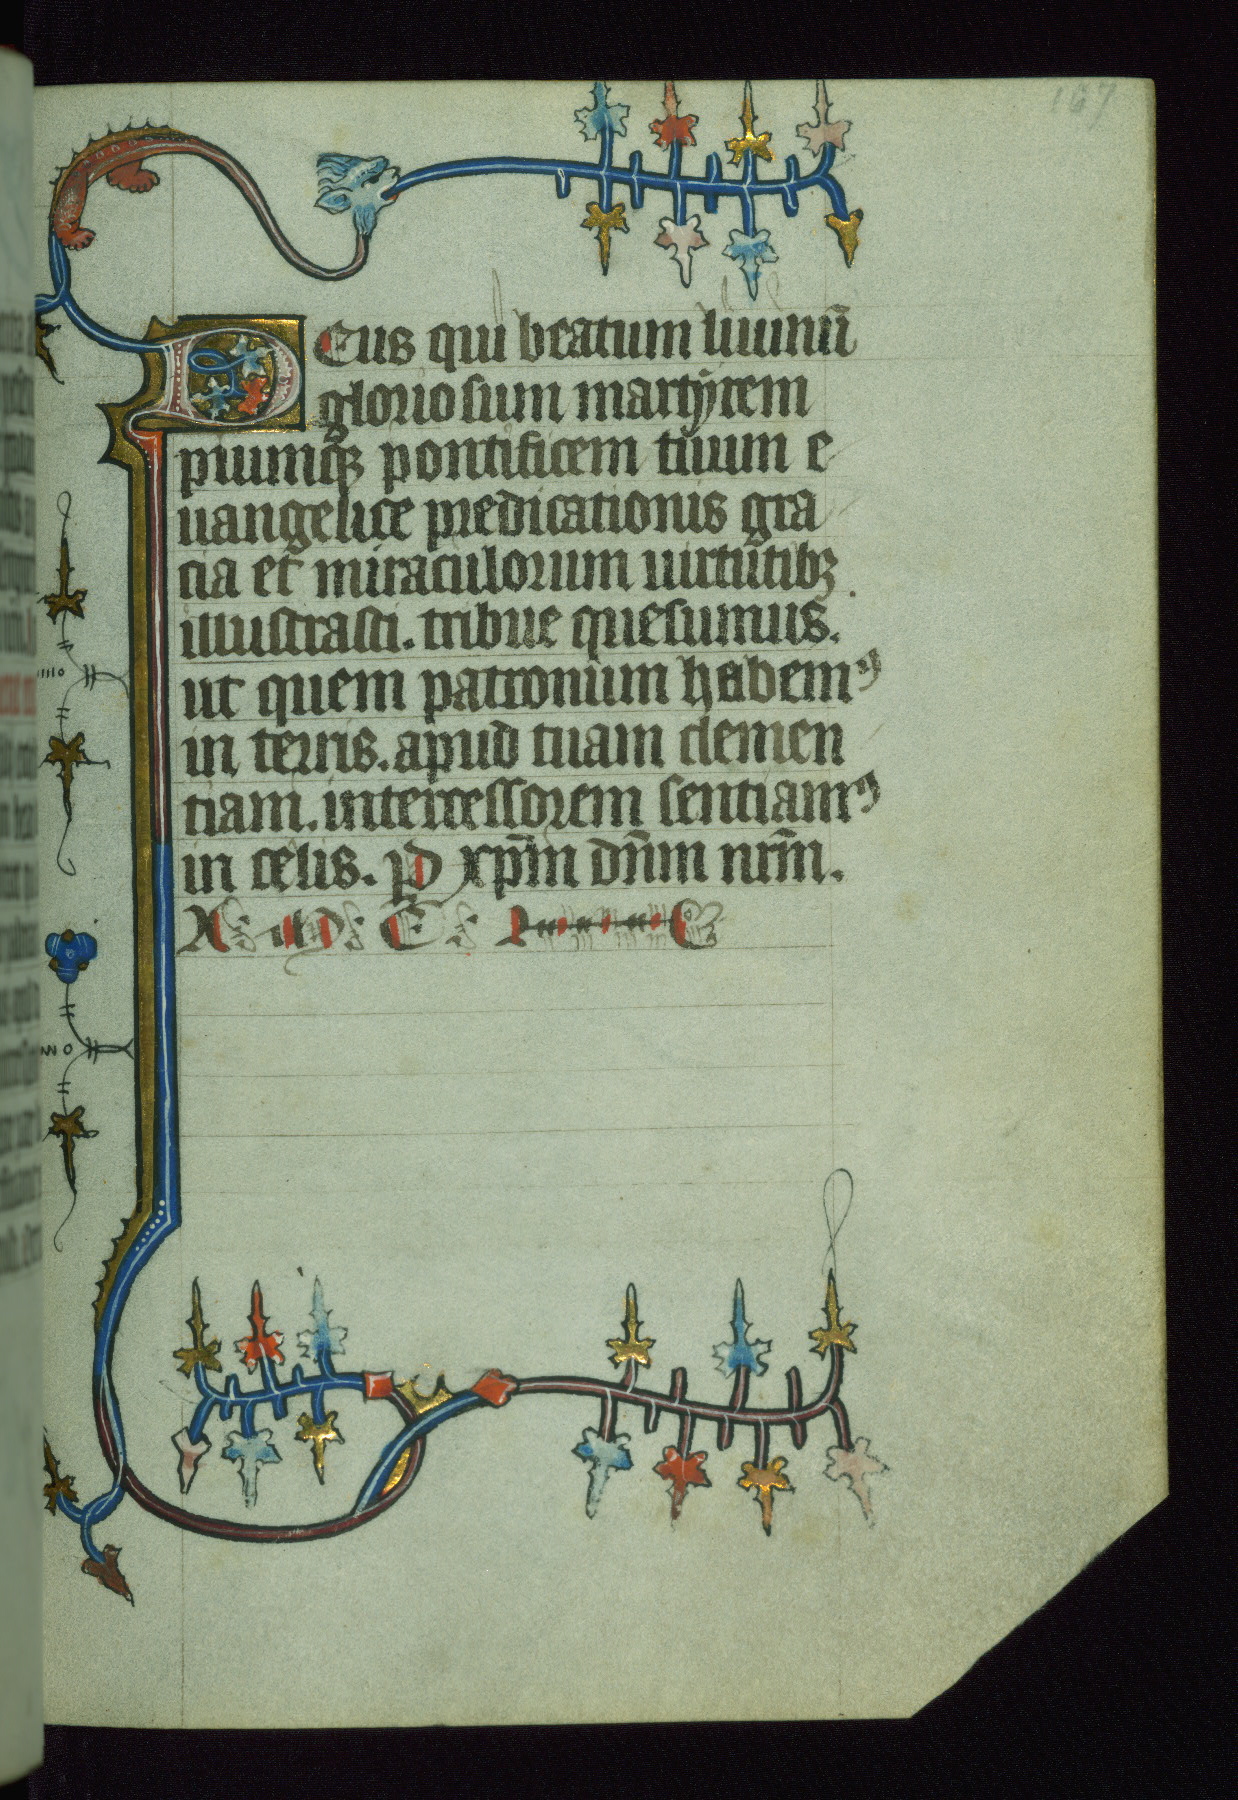 167
Deus qui beatum liuinū
gloriosum martẏrem
piumqꝫ pontificem tuum e
uangelice predicationis gra
cia et miraculorum uirtutibꝫ
illustrasti. tribue quesumus.
ut quem patronum habemꝰ
in terris. apud tuam clemen
tiam. intercessorem sentiamꝰ
in celis. p̄d xp̄m dn̄m nr̄m.